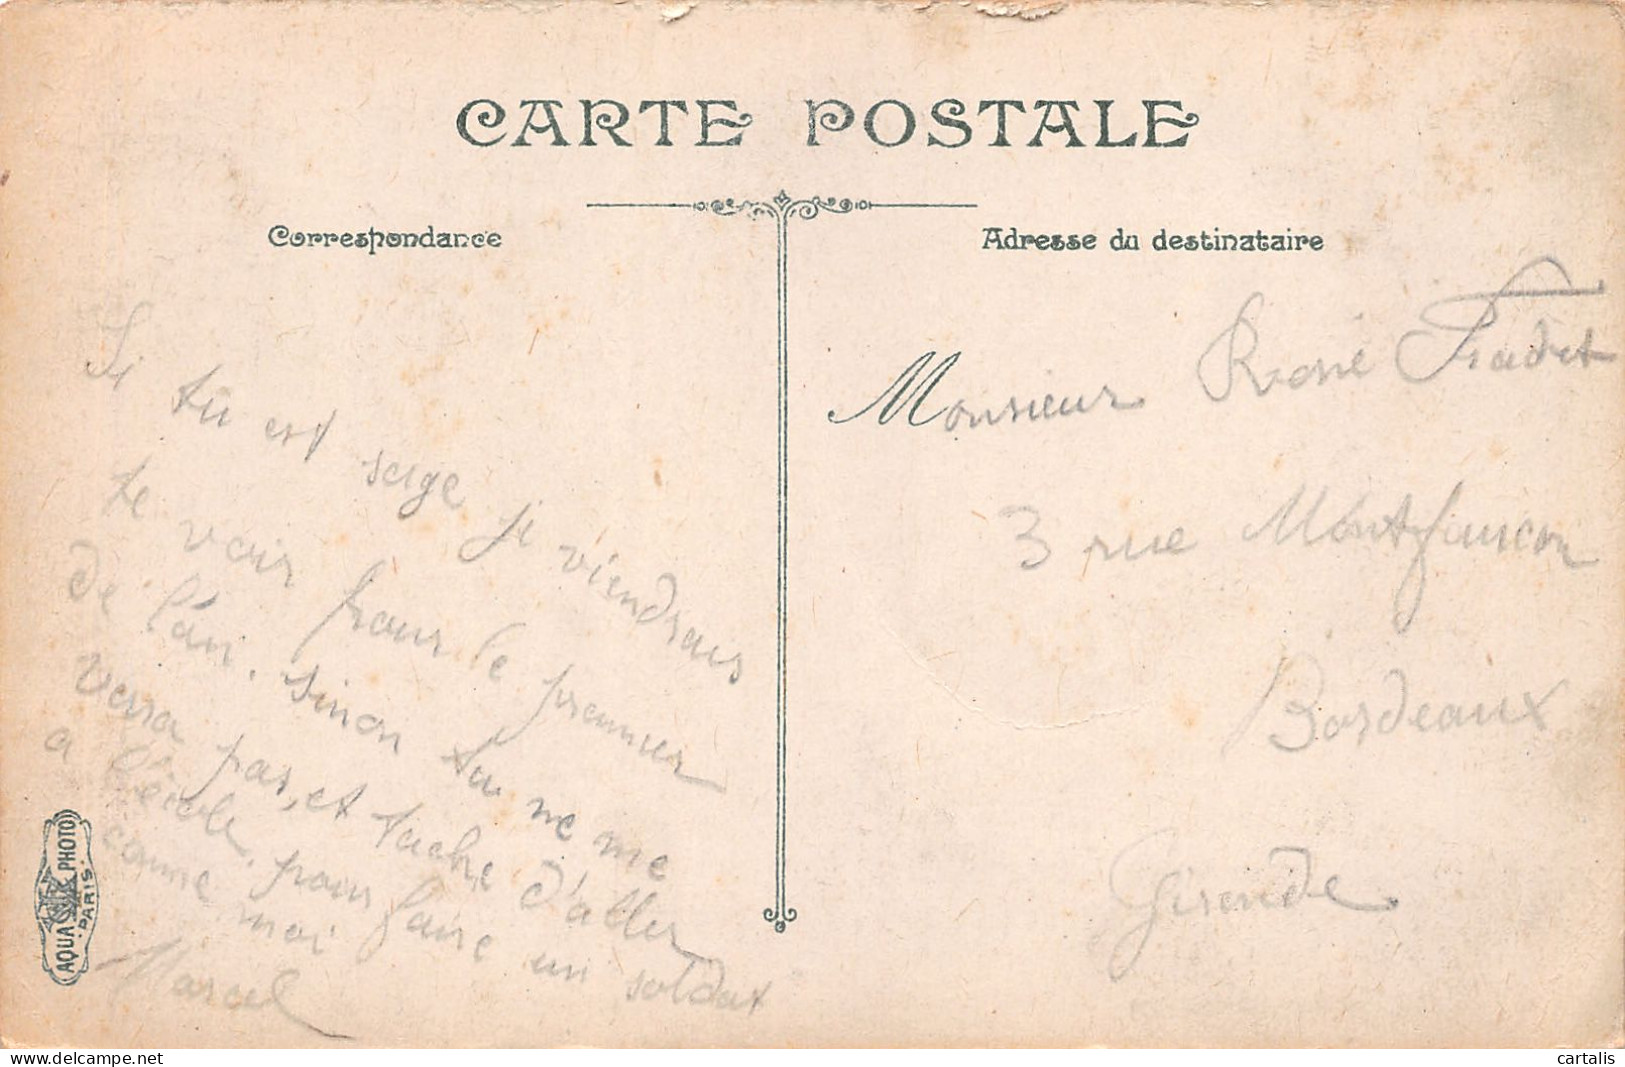 CARTE POSTALE
Correspondance
Si tu est sage je viendrais
te voir pour le premier
de l'an. sinon tu ne me
verra pas, et tache d'aller
a l'école, pour faire un soldat
comme moi
Marcel
Adresse du destinataire
Monsieur René Fradet
3 rue Montfaucon
Bordeaux
Gironde
AQUA PHOTO
PARIS
cartalis